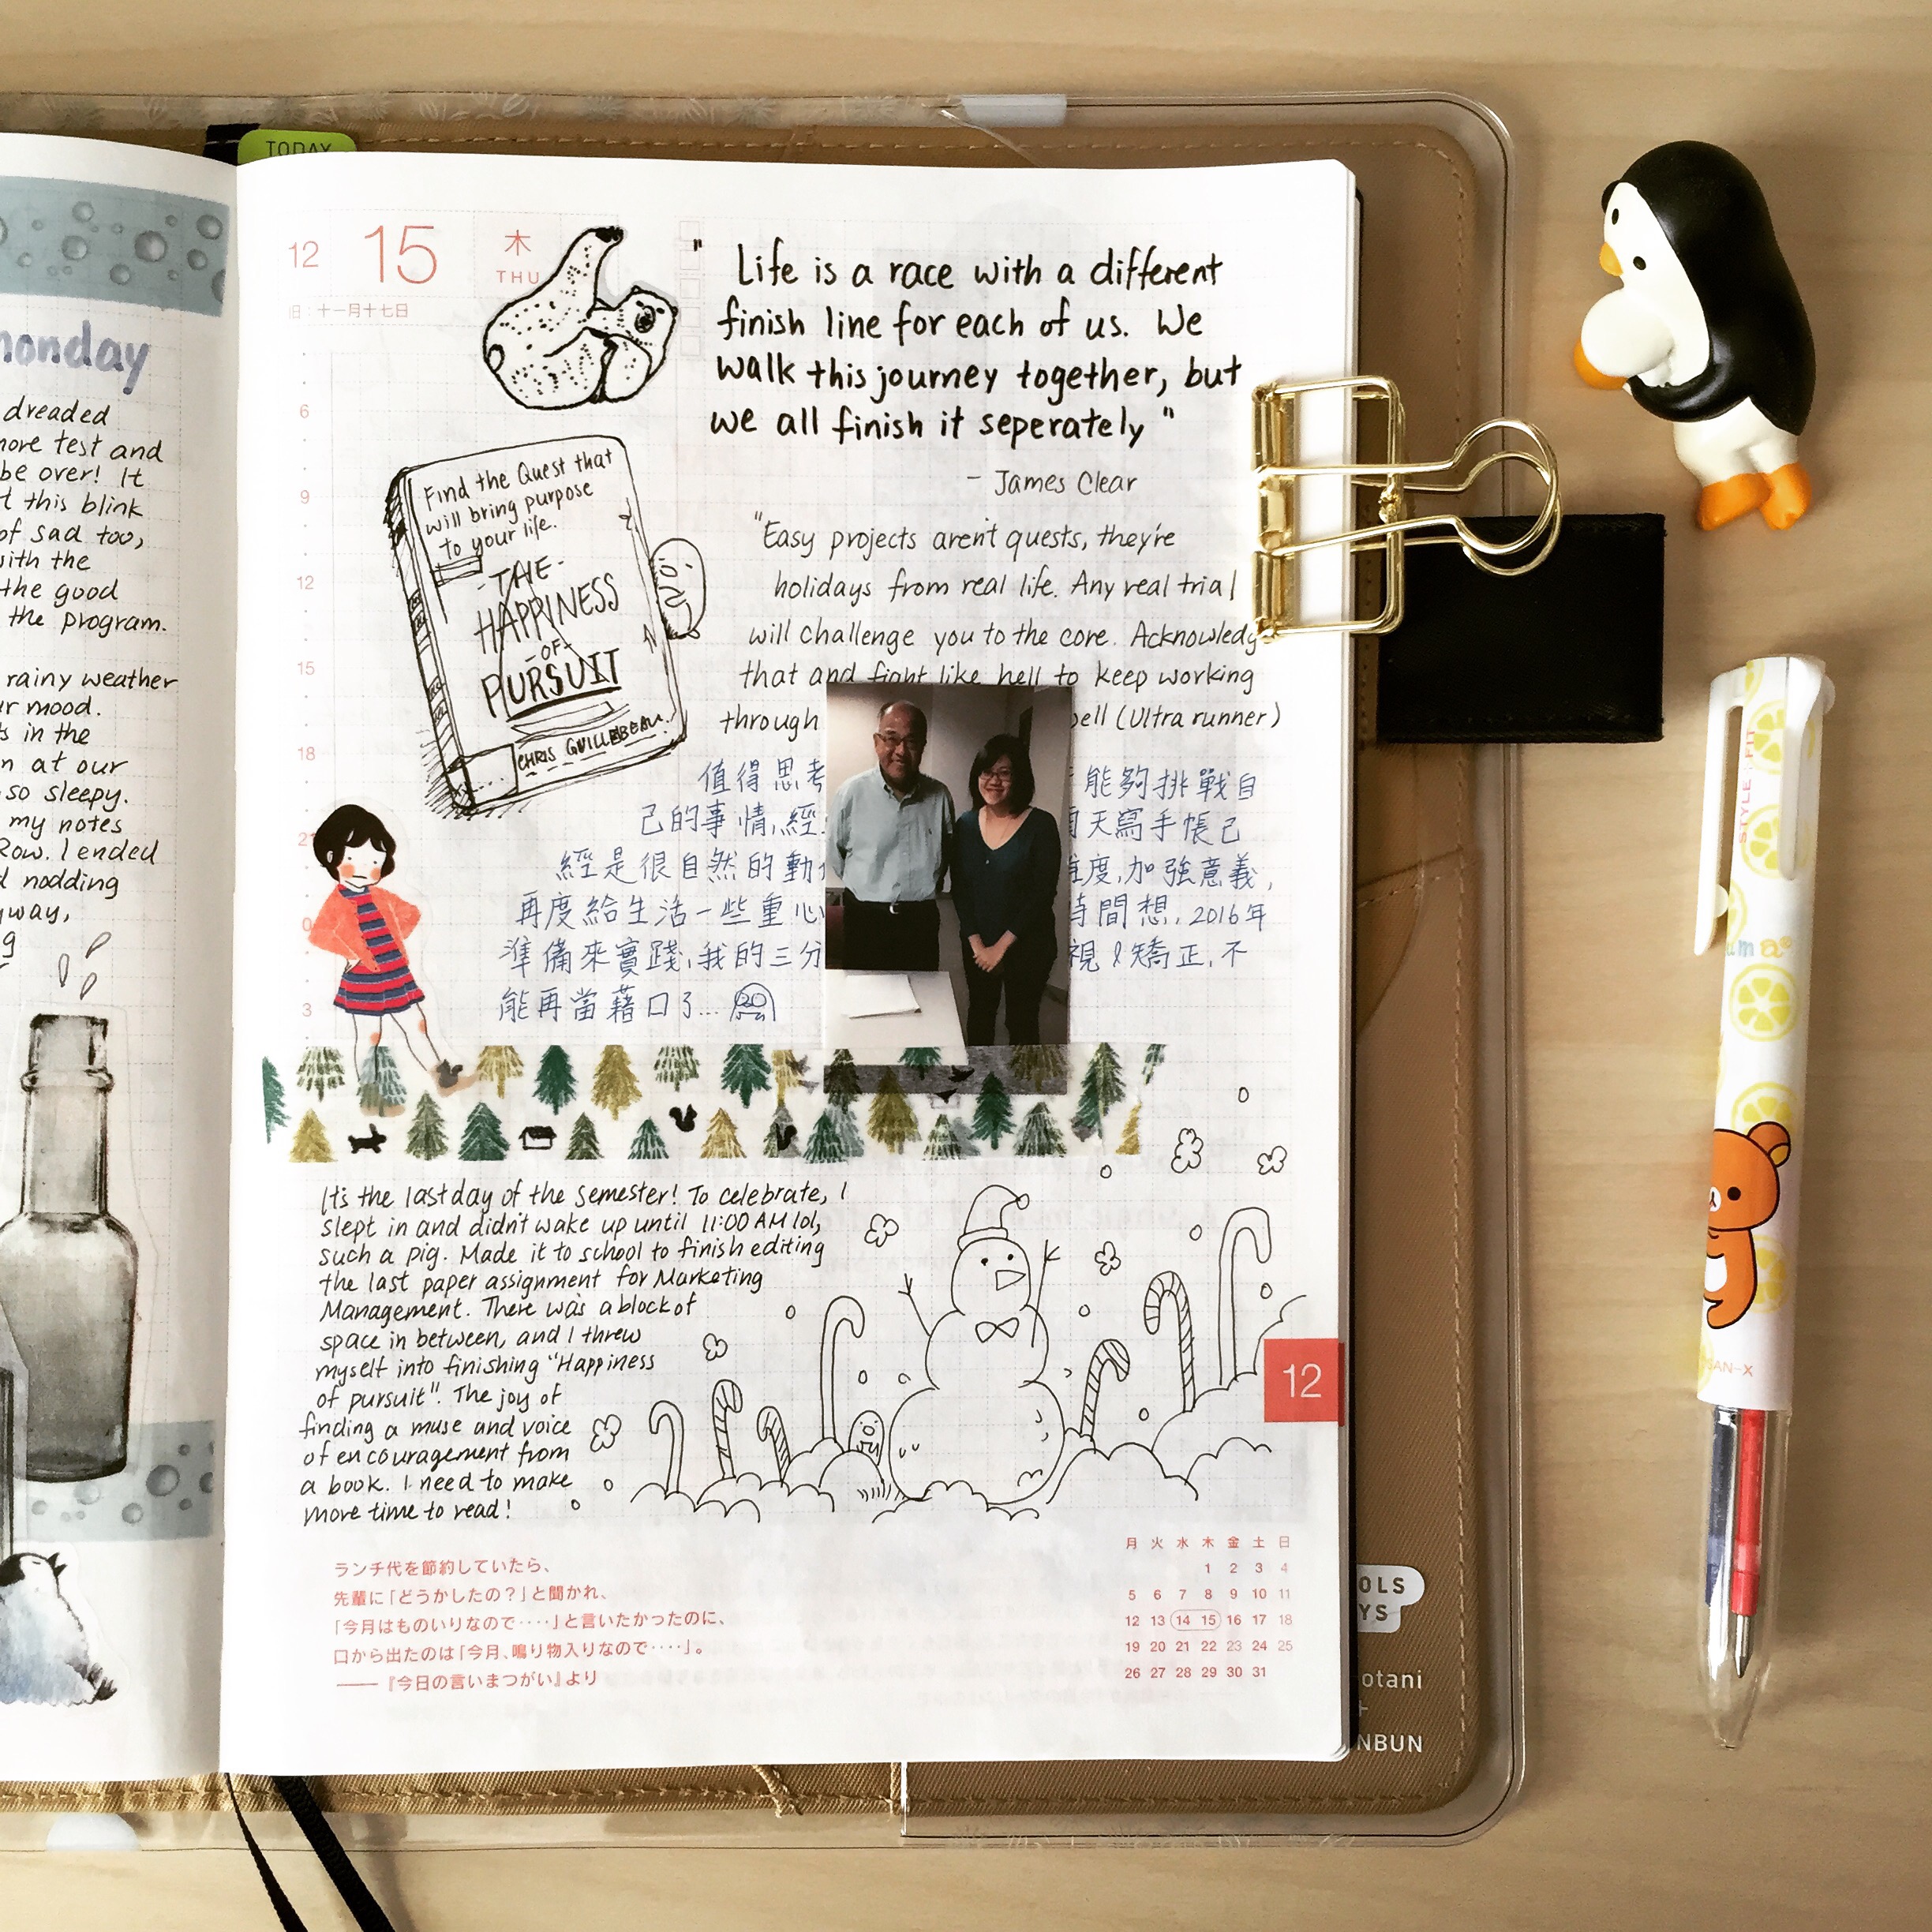 TODAY
monday
dreaded
more test and
be over! It
this blink
of sad too,
with the
the good
the program.
rainy weather
mood.
in the
at our
so sleepy.
my notes
Row. I ended
nodding
12 15 木
THU
十一月十七日
6
9
12
15
18
21
0
3
" Life is a race with a different
finish line for each of us. We
walk this journey together, but
we all finish it seperately "
- James Clear
Find the Quest that
will bring purpose
to your life.
-THE-
HAPPINESS
-OF-
PURSUIT
CHRIS GUILLEBEAU
"Easy projects aren't quests, they're
holidays from real life. Any real trial
will challenge you to the core. Acknowledg
that and fight like hell to keep working
through bell (Ultra runner)
值得思考 能夠挑戰自
己的事情,經 天寫手帳已
經是很自然的動 難度,加強意義,
再度給生活一些重心 時間想,2016年
準備來實踐,我的三分 視&矯正,不
能再當藉口了...
It's the last day of the semester! To celebrate, I
slept in and didn't wake up until 11:00 AM lol,
such a pig. Made it to school to finish editing
the last paper assignment for Marketing
Management. There was a block of
space in between, and I threw
myself into finishing "Happiness
of pursuit". The joy of
finding a muse and voice
of encouragement from
a book. I need to make
more time to read!
12
ランチ代を節約していたら、
先輩に「どうかしたの？」と聞かれ、
「今月はものいりなので‥‥」と言いたかったのに、
口から出たのは「今月、鳴り物入りなので‥‥」。
——『今日の言いまつがい』より
月 火 水 木 金 土 日
1 2 3 4
5 6 7 8 9 10 11
12 13 14 15 16 17 18
19 20 21 22 23 24 25
26 27 28 29 30 31
OLS
YS
otani
+
NBUN
STYLE FIT
SAN-X